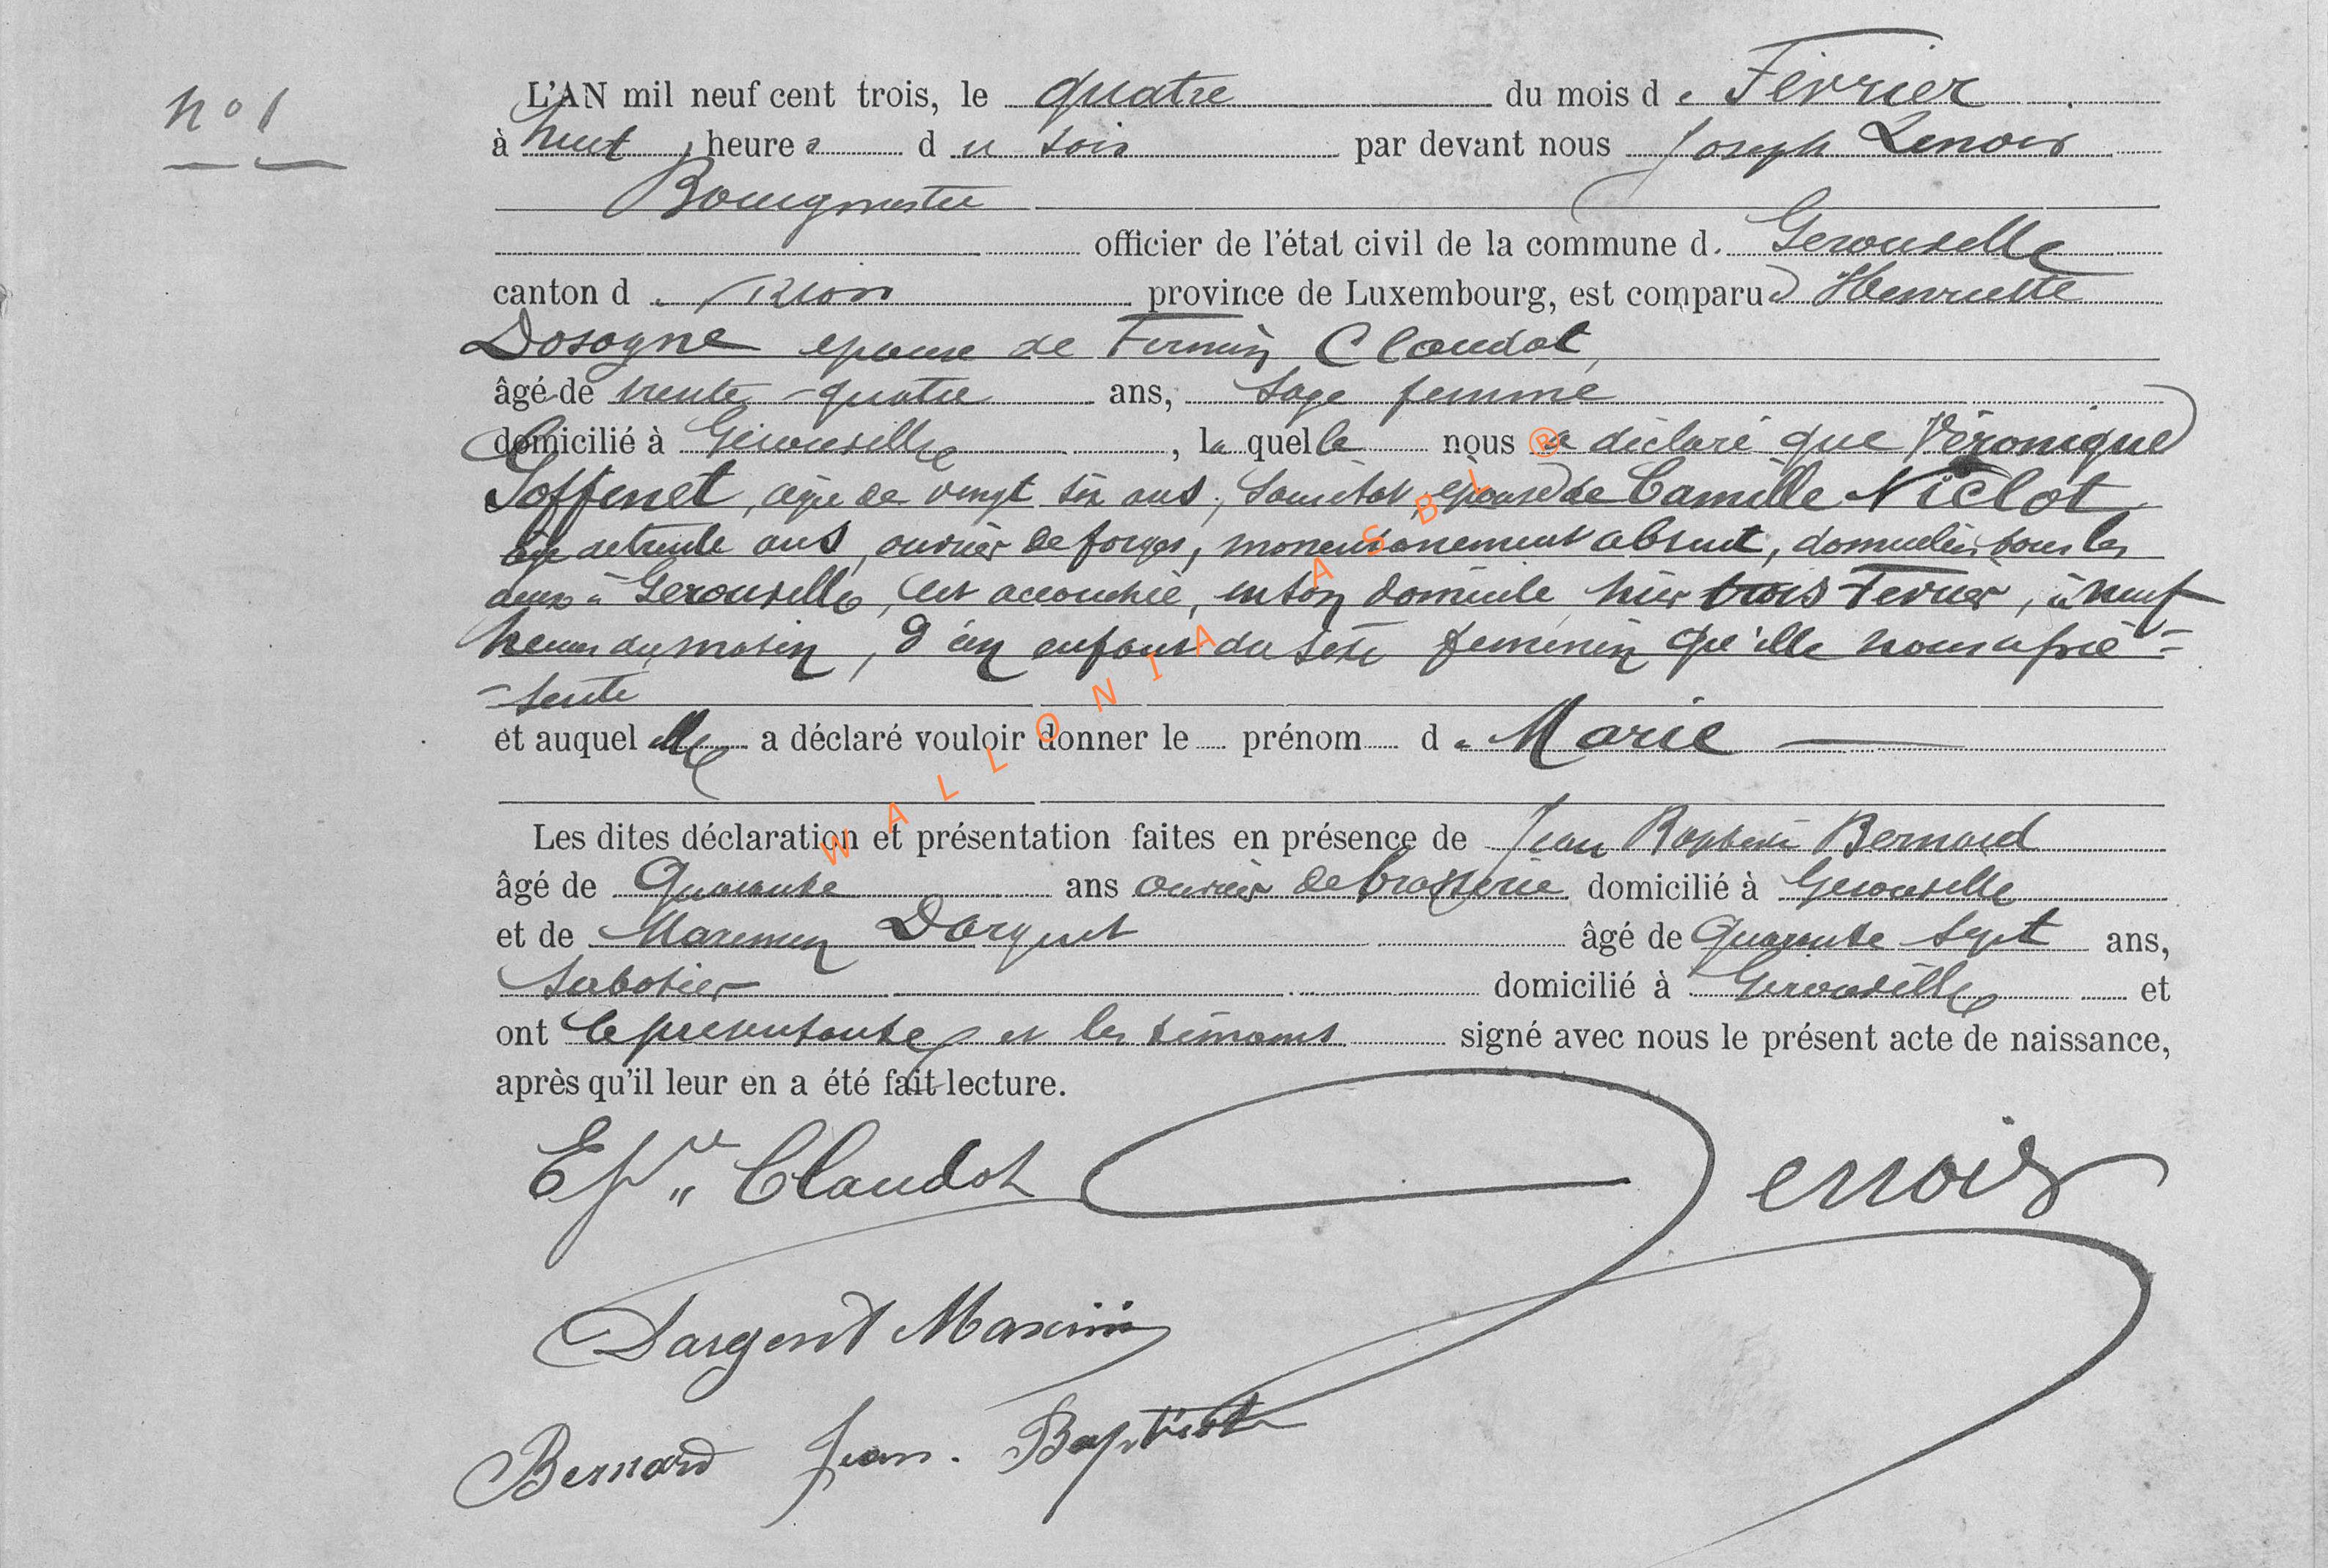 n° 1
L'AN mil neuf cent trois, le quatre du mois de Février
à huit heures du soir par devant nous Joseph Lenoir
Bourgmestre
officier de l'état civil de la commune d. Gerouville
canton de Virton province de Luxembourg, est comparue Henriette
Dosogne épouse de Firmin Claudot,
âgé de trente-quatre ans, Sage femme
domicilié à Gerouville, laquelle nous a déclaré que Véronique
Goffinet, agée de vingt six ans, Sans état, épouse de Camille Niclot,
âgé de trente ans, ouvrier de forges, momentanement absent, domiciliés tous les
deux à Gerouville, est accouchée, en son domicile hier trois Fevrier, à neuf
heures du matin, d'un enfant du sexe feminin qu'elle nous a pré=
=senté
et auquel elle a déclaré vouloir donner le prénom de Marie
Les dites déclaration et présentation faites en présence de Jean Baptiste Bernard
âgé de Quarante ans ouvrier de brasserie domicilié à Gerouville
et de Maximin Dargent âgé de Quarante sept ans,
Sabotier domicilié à Gerouville et
ont la présentante et les témoins signé avec nous le présent acte de naissance,
après qu'il leur en a été fait lecture.
Ep.se Claudot Lenoir
Dargent Maximin
Bernard Jean. Baptiste
WALLONIA ASBL ®